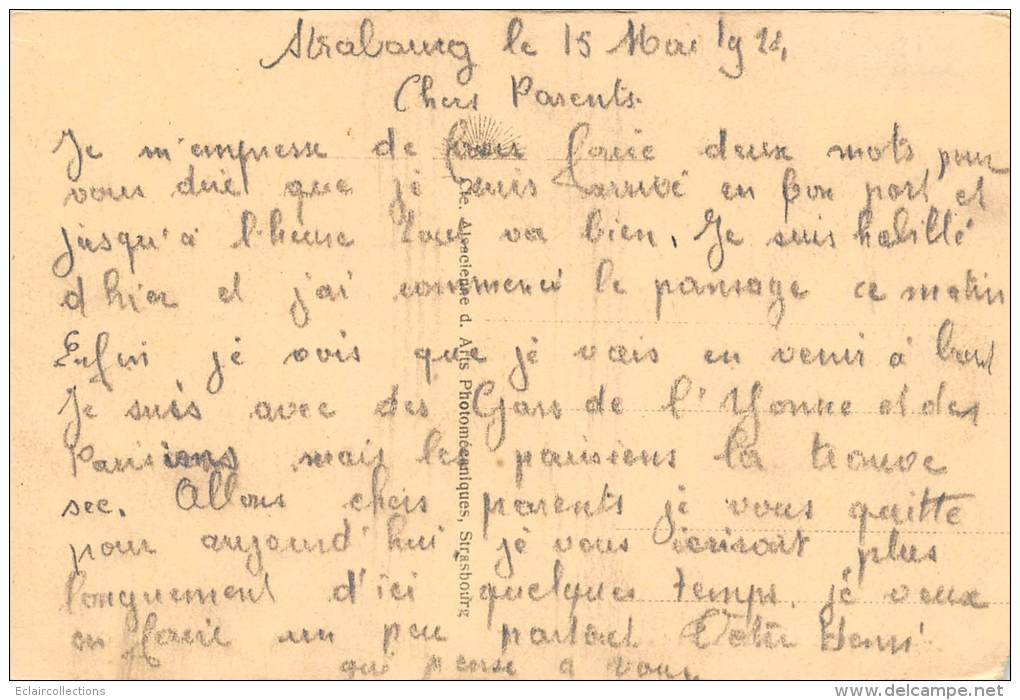 Strabourg le 15 Mai 192
Chers Parents.
Je m'empresse de faire deux mots pour
vous dire que je suis arrivé en bon port et
jusqu'à l'heure tout va bien. Je suis habillé
d'hier et j'ai commencé le pansage ce matin
Enfin je vois que je vais en venir à bout
Je suis avec des Gars de l'Yonne et des
Parisiens mais les parisiens la trouve
sec. Allons chers parents je vous quitte
pour aujourd'hui je vous écrirait plus
longuement d'ici quelques temps. je veux
en faire un peu partout Votre Henri
qui pense a vous
Sté. Alsacienne d. Arts Photomécaniques, Strasbourg
Eclaircollections
http://www.delcampe.net